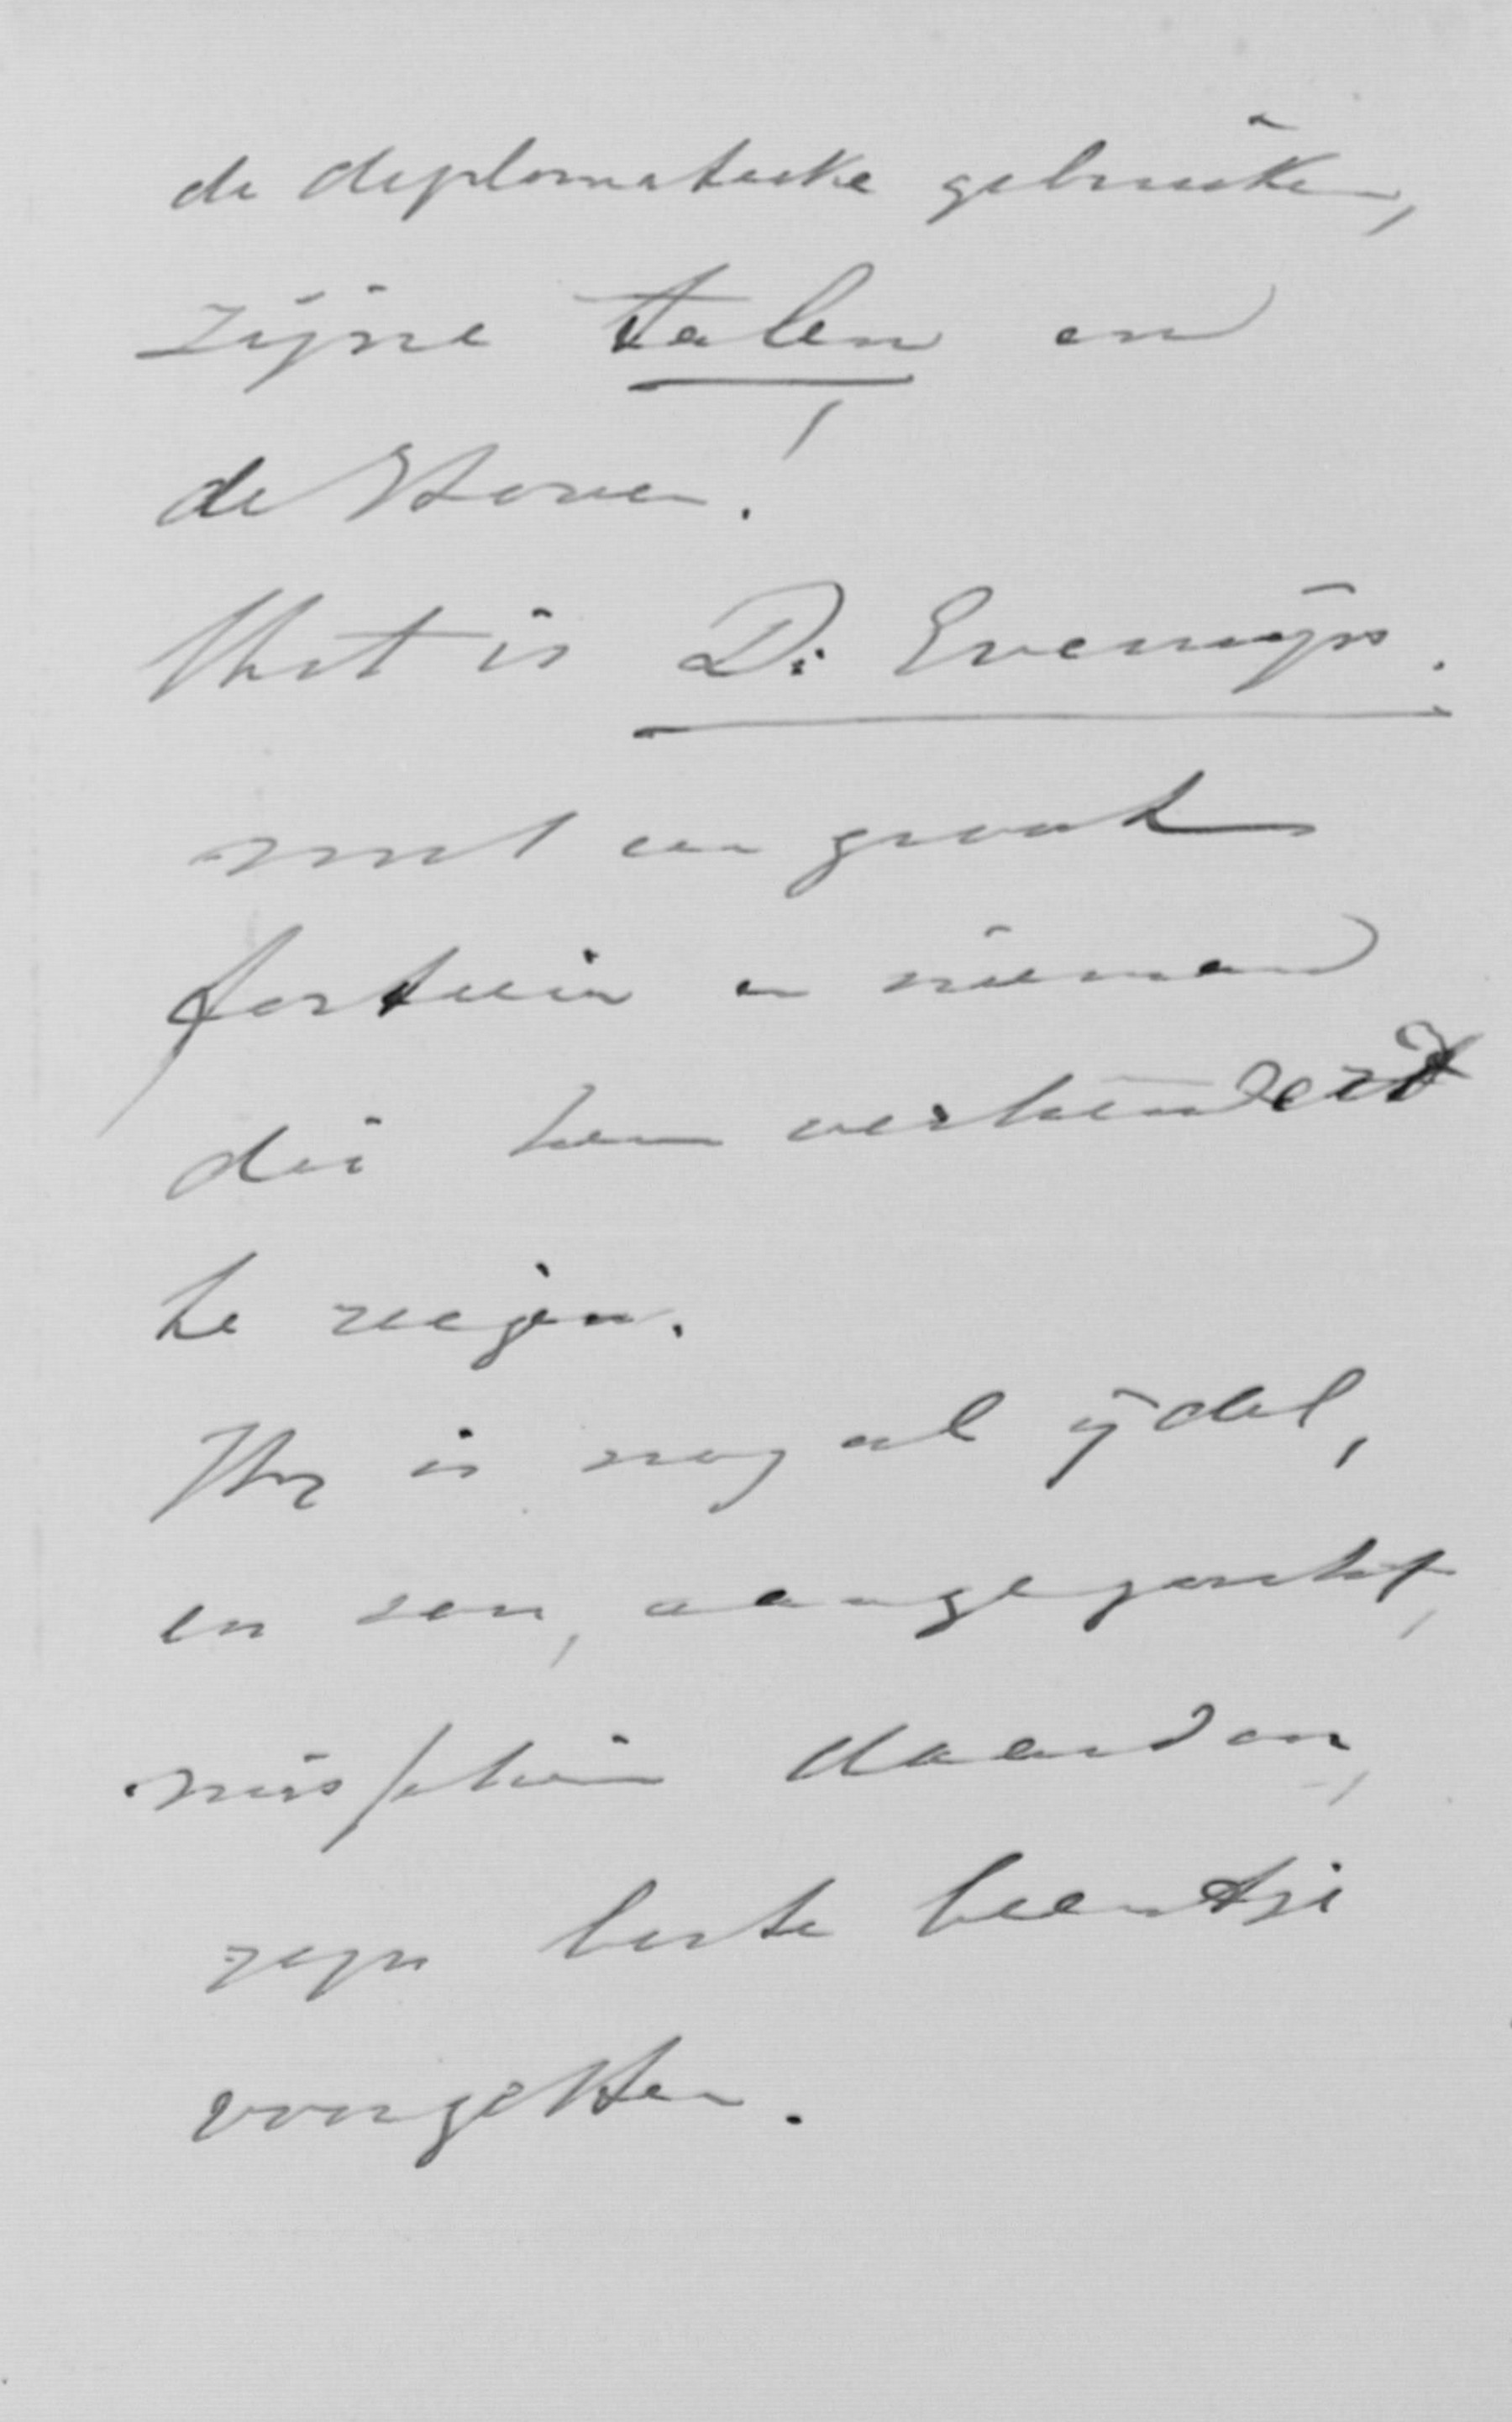 de diplomatieke gebruiken,
zijne talen en
de Hoven!
Het is Dr. Evenwijs.
met een groot
fortuin en niemand
die hem verhindert
te reizen.
Hij is nog al ijdel,
en zou, aangezocht,
misschien daarvan,
zijn beste beentje
voorzetten.